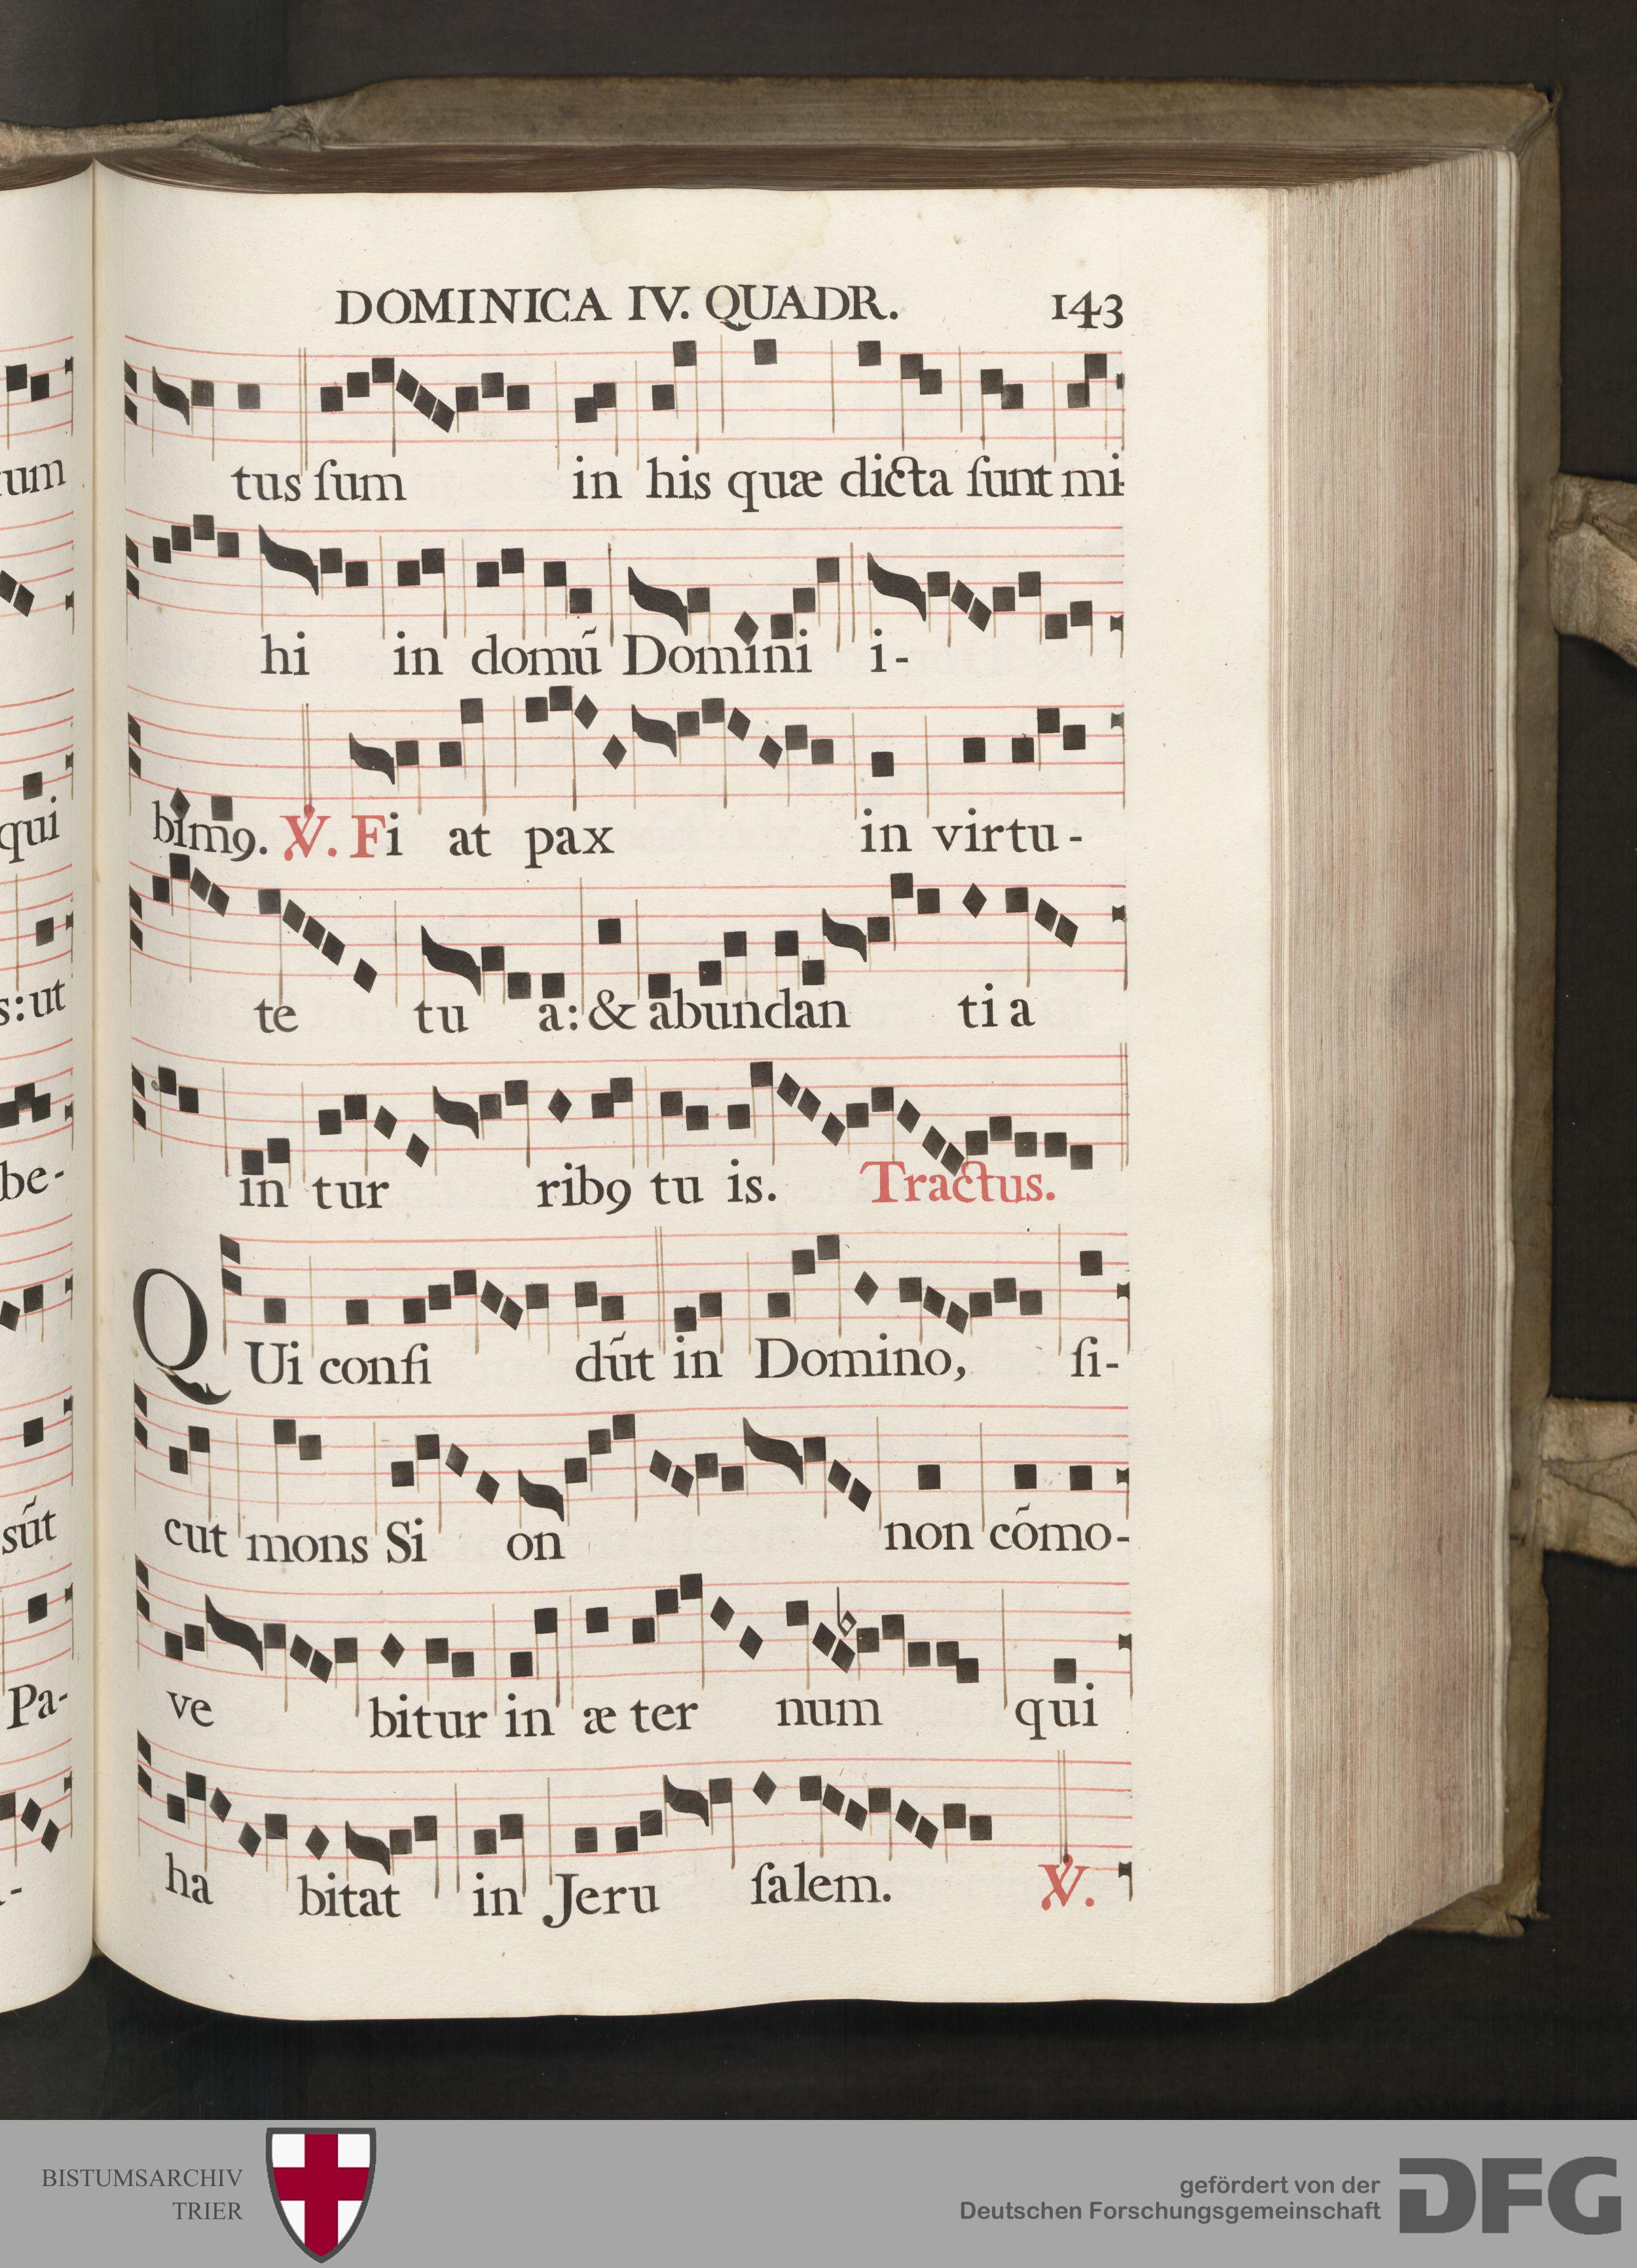 DOMINICA IV. QUADR. 143
tus ſum in his quæ dicta ſunt mi
hi in domū Domini i-
bimꝯ. ℣. Fi at pax in virtu-
te tu a: & abundan ti a
in tur ribꝯ tu is. Tractus.
QUi confi dūt in Domino, ſi-
cut mons Si on non cōmo-
ve bitur in æ ter num qui
ha bitat in Jeru ſalem. ℣.
um
qui
s: ut
be-
sūt
Pa-
BISTUMSARCHIV
TRIER
gefördert von der
Deutschen Forschungsgemeinschaft
DFG